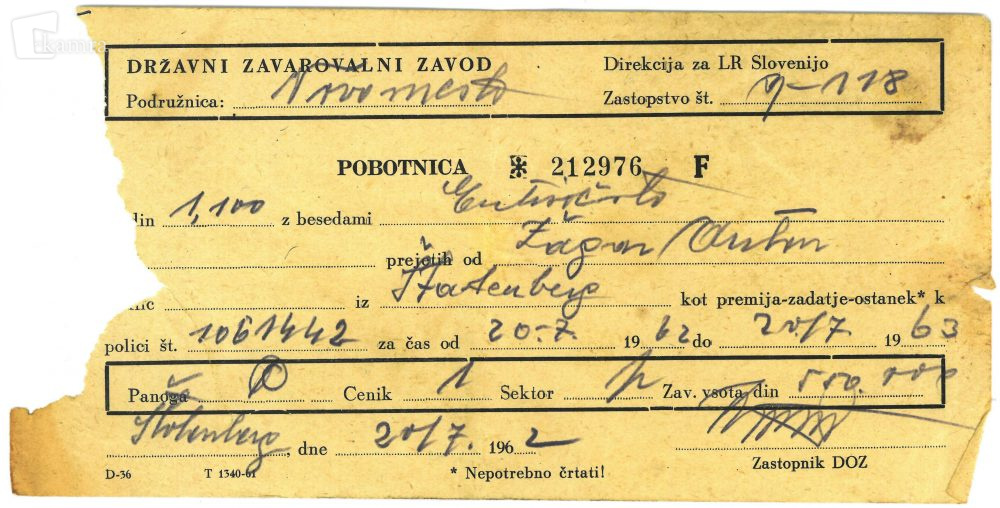 kamra
DRŽAVNI ZAVAROVALNI ZAVOD Direkcija za LR Slovenijo
Podružnica: Novo mesto Zastopstvo št. 9-118
POBOTNICA 212976 F
din 1,100 z besedami
prejetih od Žagar Anton
iz Štatenberg kot premija-zadatje-ostanek* k
polici št. 1061442 za čas od 20.7. 1962 do 20/7 1963
Panoga Cenik 1 Sektor p Zav. vsota din 550.000
Štatenberg, dne 20/7. 1962
Zastopnik DOZ
D-36 T 1340-61 * Nepotrebno črtati!